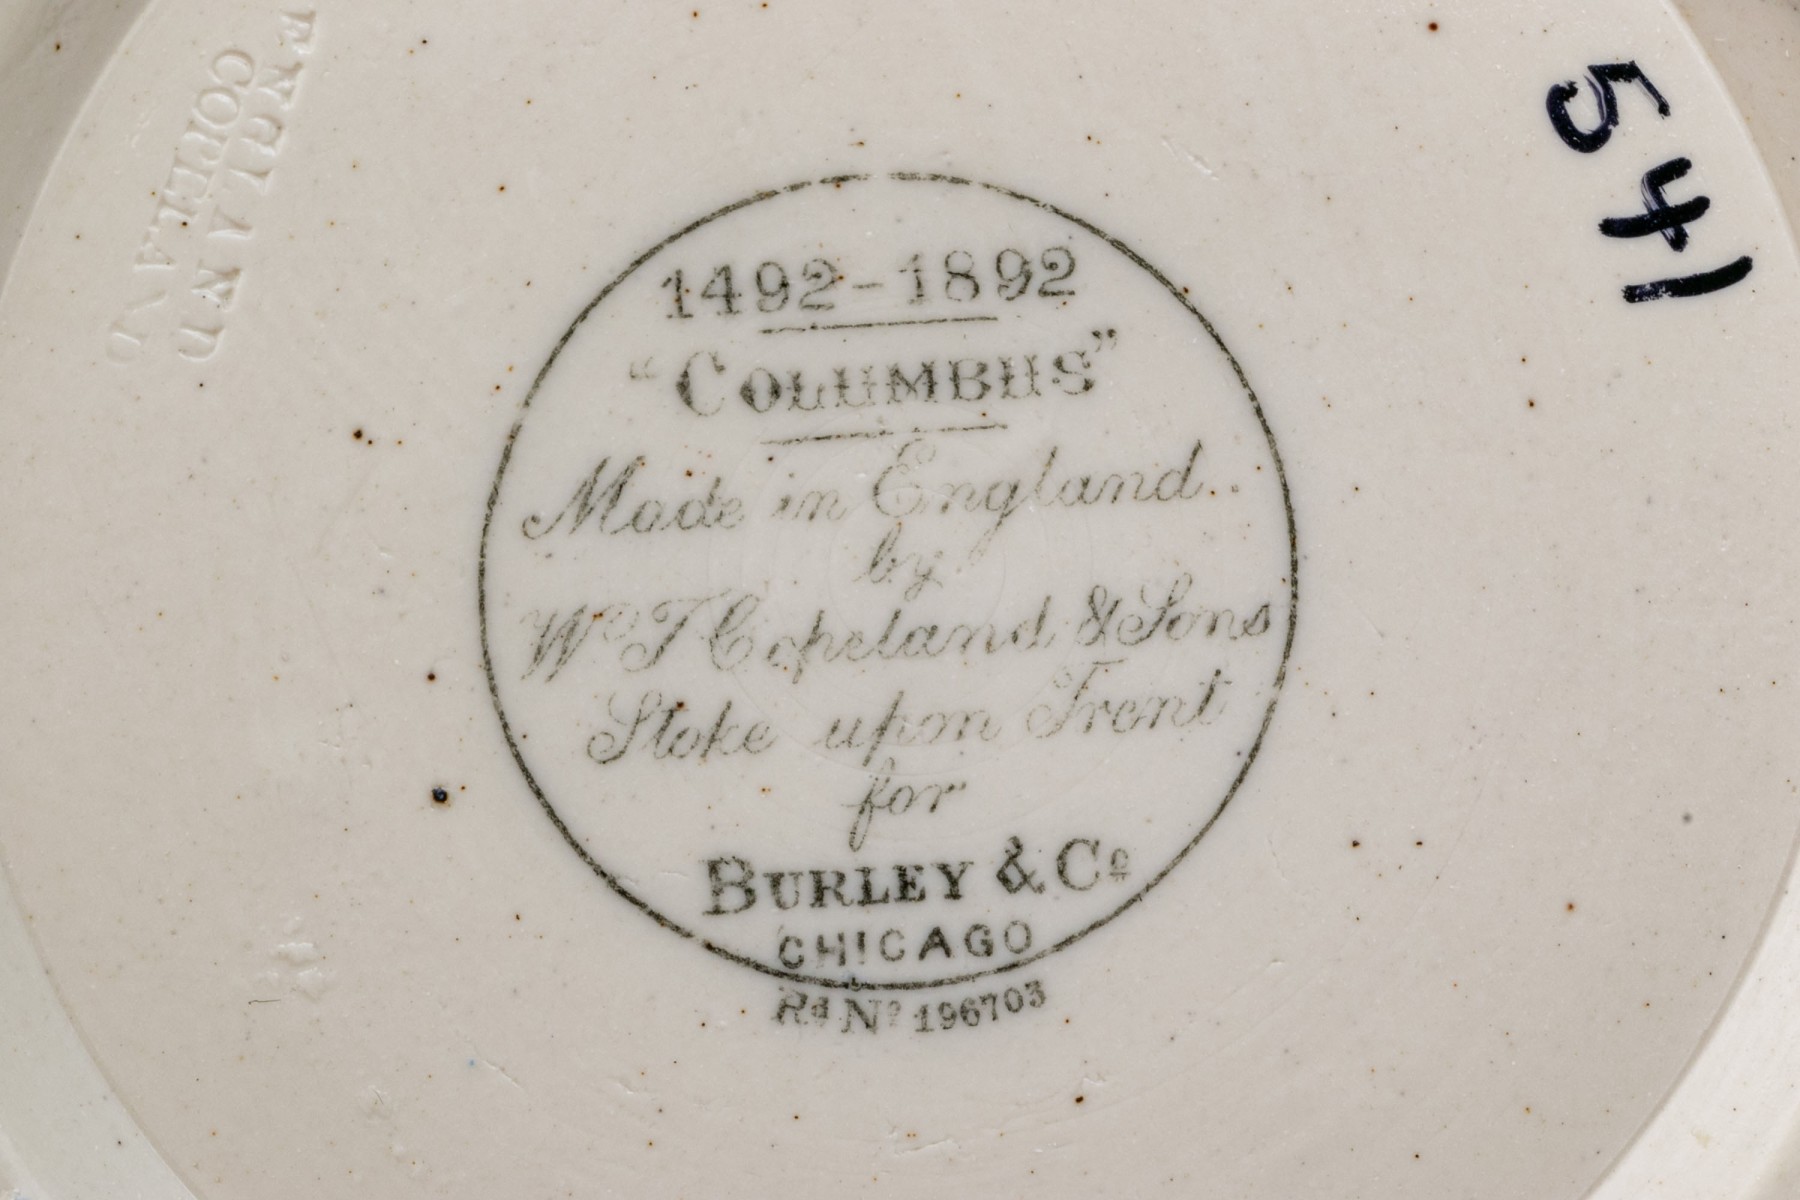 ENGLAND
COPELAND
541
1492-1892
"COLUMBUS"
Made in England.
by
Wm T Copeland & Sons
Stoke upon Trent
for
BURLEY & Co
CHICAGO
Rd No 196703